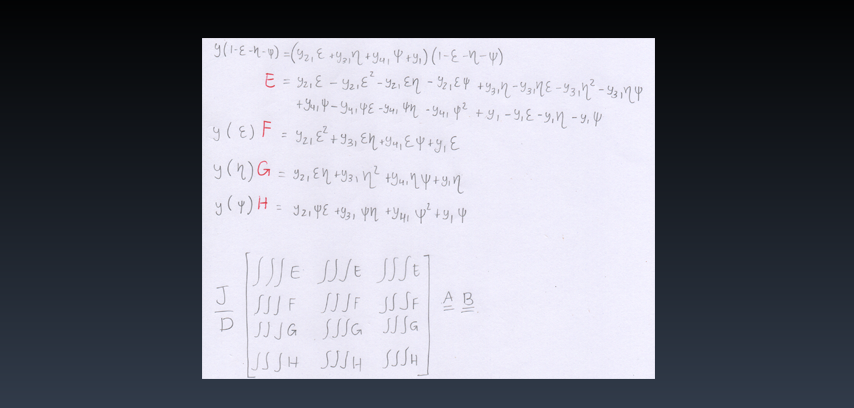 y(1-ε-η-ψ)=(y₂₁ε+y₃₁η+y₄₁ψ+y₁)(1-ε-η-ψ)
E = y₂₁ε - y₂₁ε² - y₂₁εη - y₂₁εψ + y₃₁η - y₃₁ηε - y₃₁η² - y₃₁ηψ
+y₄₁ψ - y₄₁ψε - y₄₁ψη - y₄₁ψ² + y₁ - y₁ε - y₁η - y₁ψ
y(ε) F = y₂₁ε² + y₃₁εη + y₄₁εψ + y₁ε
y(η) G = y₂₁εη + y₃₁η² + y₄₁ηψ + y₁η
y(ψ) H = y₂₁ψε + y₃₁ψη + y₄₁ψ² + y₁ψ
∫∫∫E ∫∫∫E ∫∫∫E
J ∫∫∫F ∫∫∫F ∫∫∫F A B
D ∫∫∫G ∫∫∫G ∫∫∫G
∫∫∫H ∫∫∫H ∫∫∫H